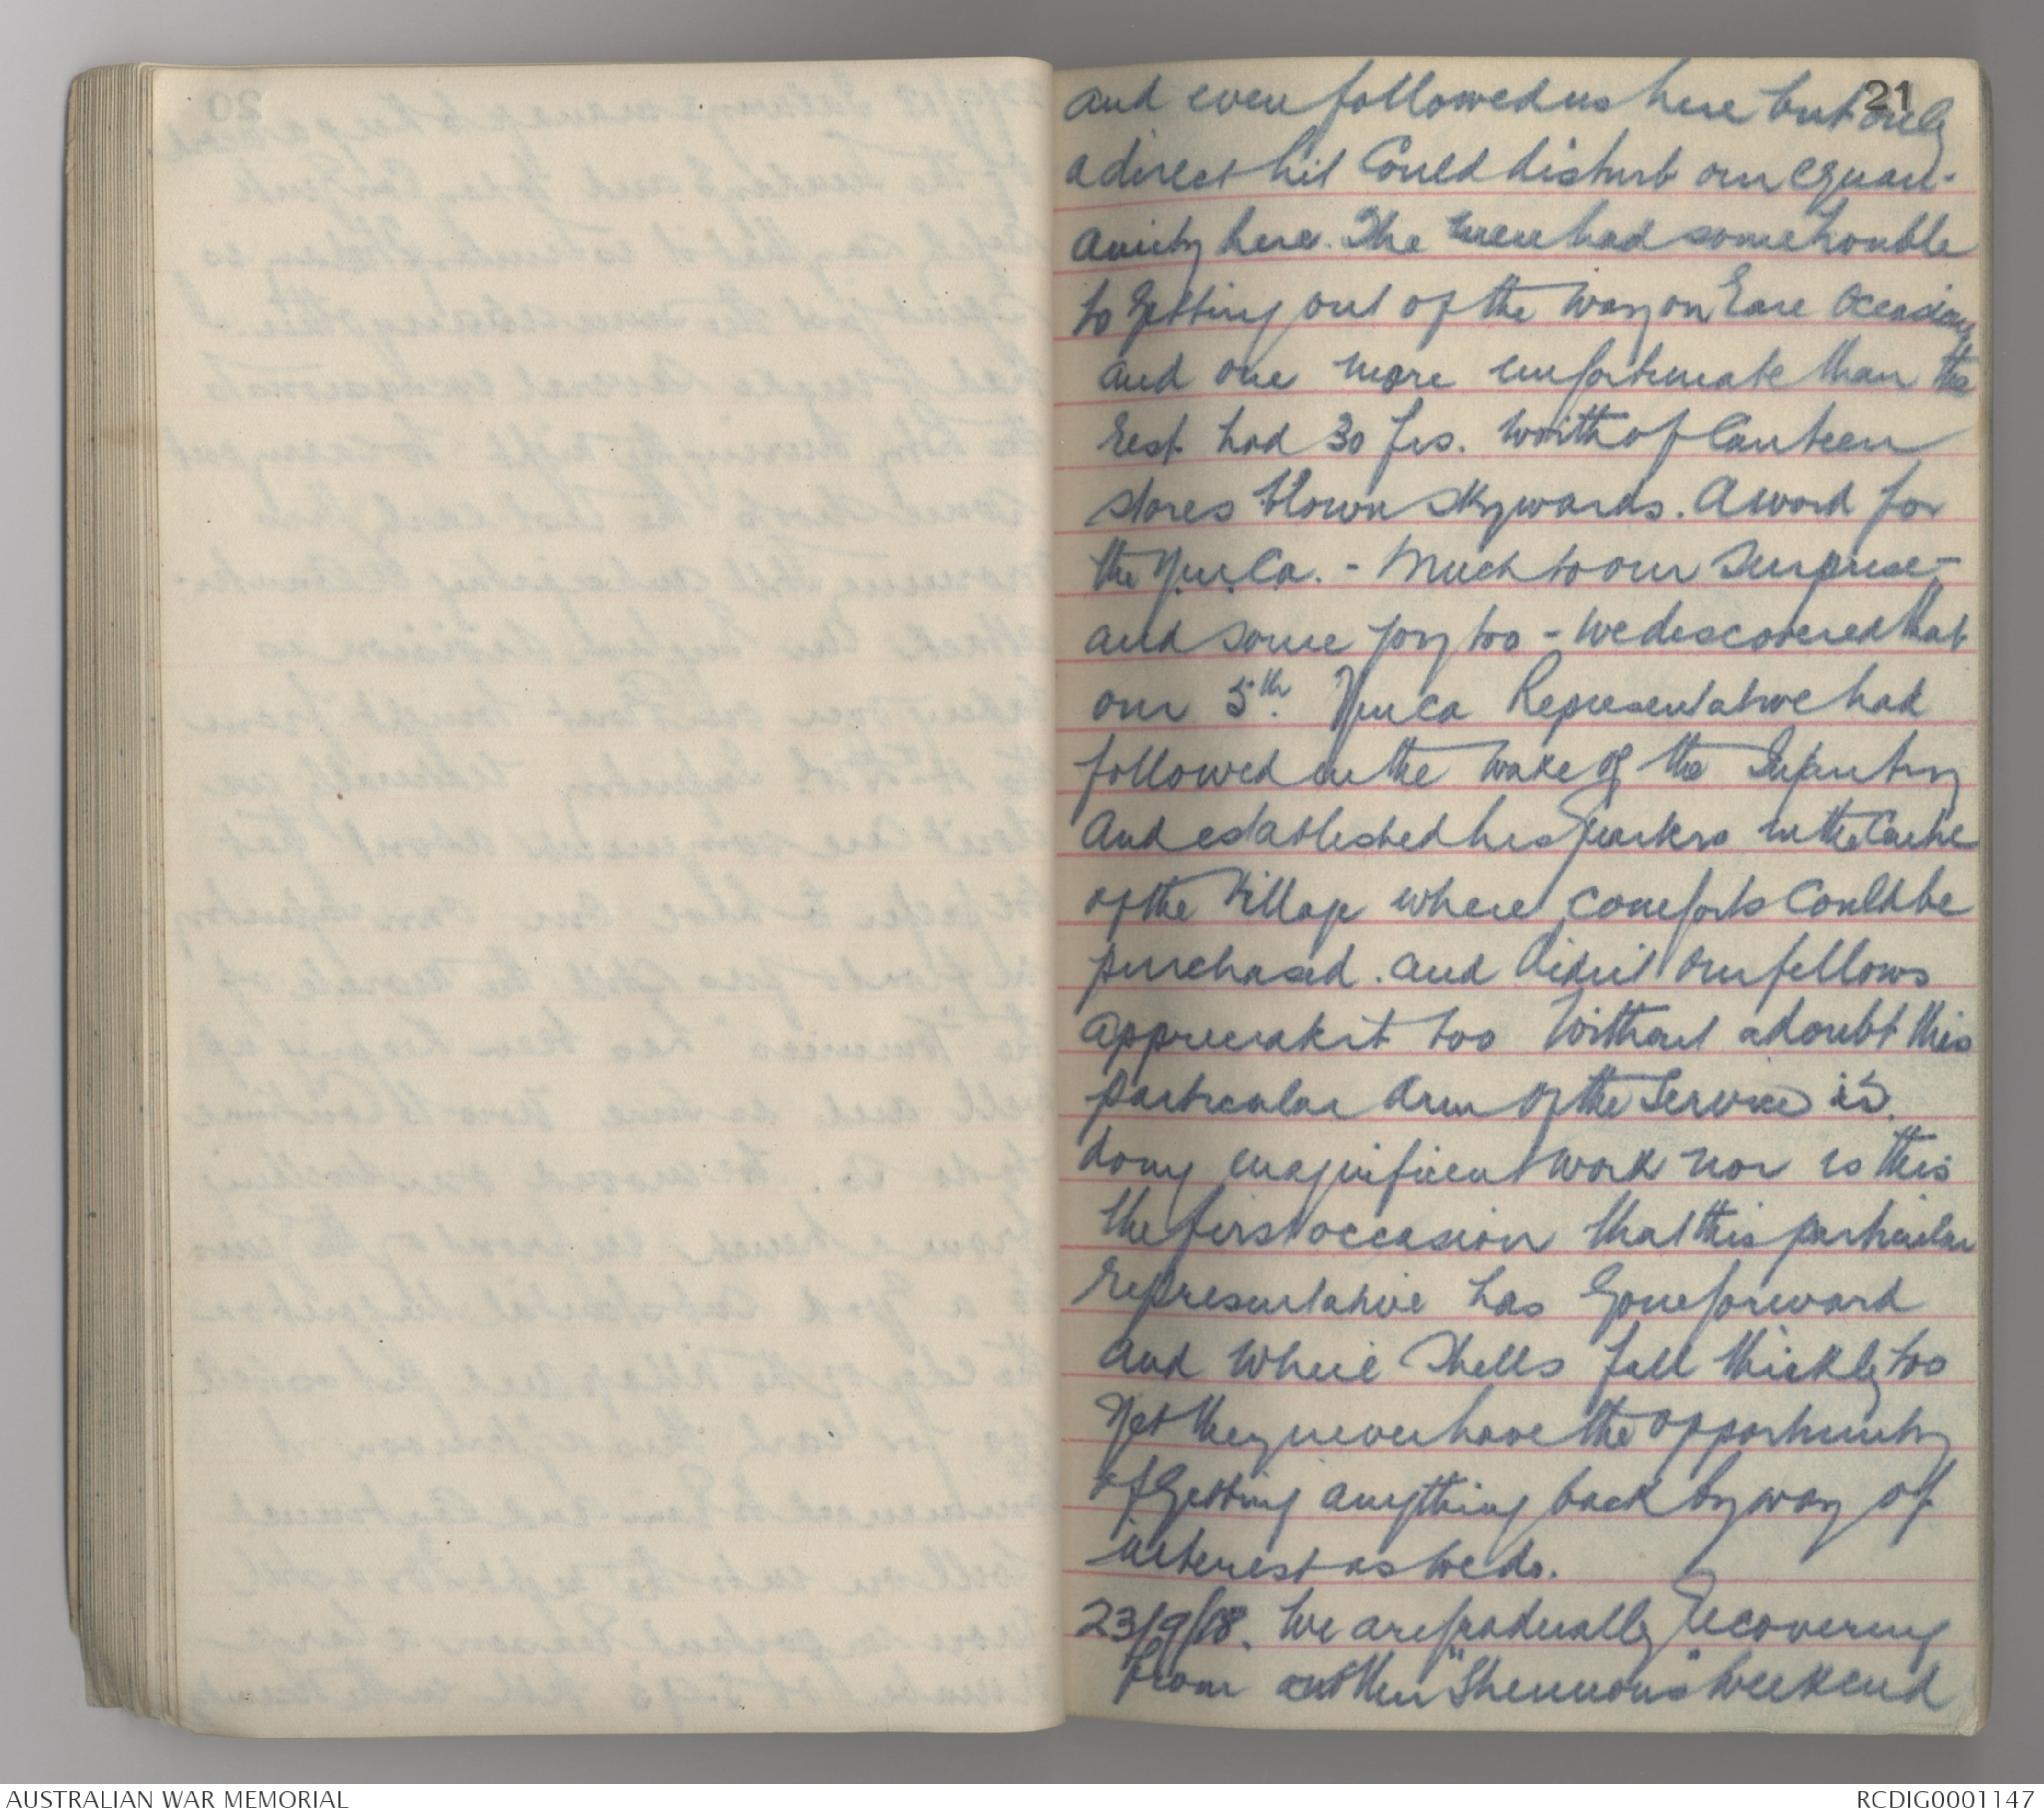 21
and even followed us here but only
a direct hit could disturb our equan-
amity here. The men had some trouble
to getting out of the way on rare occasions
and one more unfortunate than the
rest had 30 frs. worth of canteen
stores blown skywards. A word for
the Y.M.C.A. - Much to our surprise -
and some joy too - we discovered that
our 5th. Ymca Representative had
followed in the wake of the Infantry
and established his quarters in the centre
of the village where comforts could be
purchased. and didn't our fellows
appreciate it too Without a doubt this
particular arm of the service is.
doing magnificent work nor is this
the first occasion that this particular
representative has gone forward
and where shells fell thickly too
Yet they never have the opportunity
of getting anything back by way of
interest as we do.
23/9/18. We are gradually recovering
from another "Strenuous" weekend
AUSTRALIAN WAR MEMORIAL
RCDIG0001147